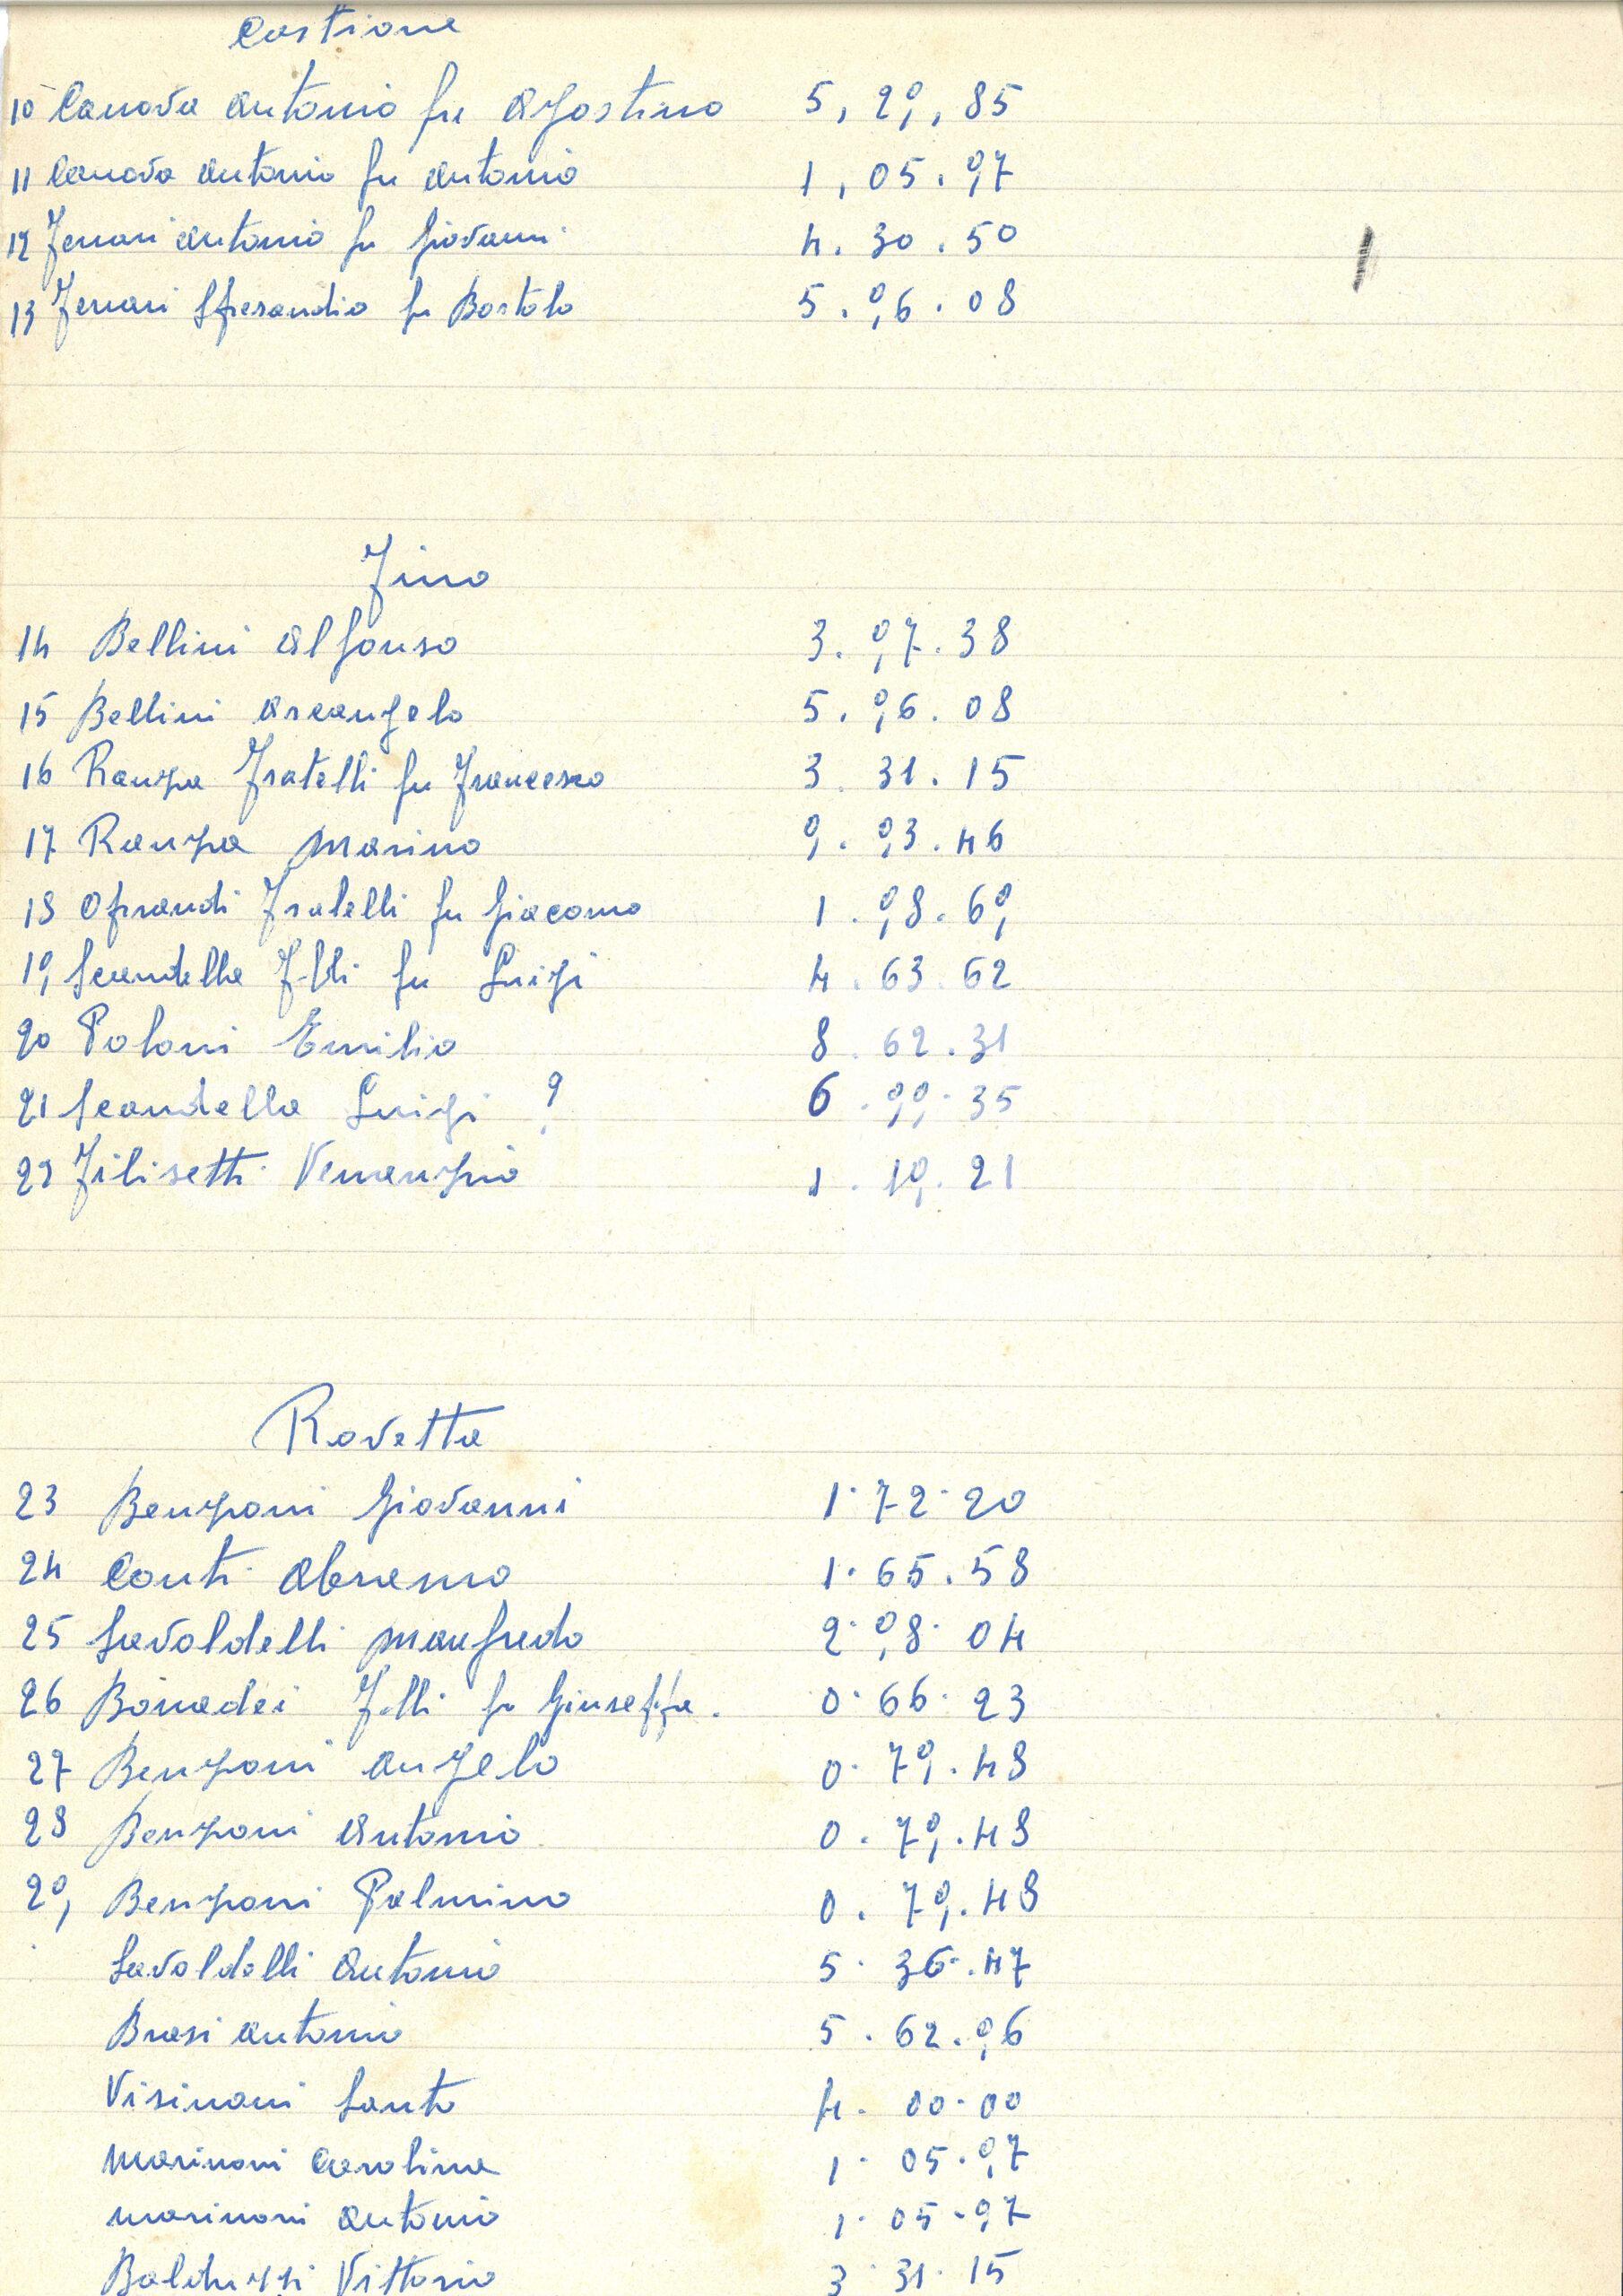 Castione
10 Canova Antonio fu Agostino 5, 29, 85
11 Canova Antonio fu Antonio 1, 05. 97
12 Ferrari Antonio fu Giovanni 4. 30. 50
13 Ferrari Sperandio fu Bortolo 5. 96. 08
Fino
14 Bellini Alfonso 3. 97. 38
15 Bellini Arcangelo 5. 96. 08
16 Ranza Fratelli fu Francesco 3. 31. 15
17 Ranza Marino 9. 93. 46
18 Oprandi Fratelli fu Giacomo 1. 98. 69
19 Scandella F.lli fu Luigi 4. 63. 62
20 Poloni Emilio 8. 62. 31
21 Scandella Luigi ? 6. 99. 35
22 Filisetti Venanzio 1. 19. 21
Rovetta
23 Benzoni Giovanni 1. 72. 20
24 Conti Abramo 1. 65. 58
25 Savoldelli Manfredo 2. 98. 04
26 Bonadei F.lli fu Giuseppe. 0. 66. 23
27 Benzoni Angelo 0. 79. 48
28 Benzoni Antonio 0. 79. 48
29 Benzoni Palmino 0. 79. 48
Savoldelli Antonio 5. 36. 47
Brasi Antonio 5. 62. 96
Visinoni Santo 4. 00. 00
Marinoni Carolina 1. 05. 97
Marinoni Antonio 1. 05. 97
Balduzzi Vittorio 3. 31. 15